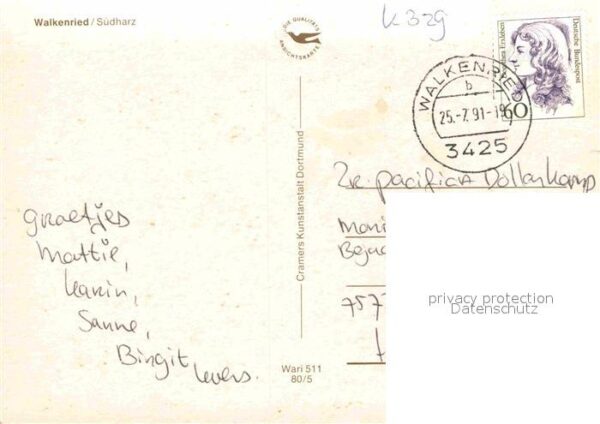 Walkenried / Südharz
DIE QUALITÄTS
ANSICHTSKARTE
K 329
Deutsche Bundespost
60
WALKENRIED
b
25.-7.91-19
3425
Zr. pacifica Dollenkamp
Cramers Kunstanstalt Dortmund
groetjes
Mattie,
Karin,
Sanne,
Birgit
757
privacy protection
Datenschutz
Wari 511
80/5